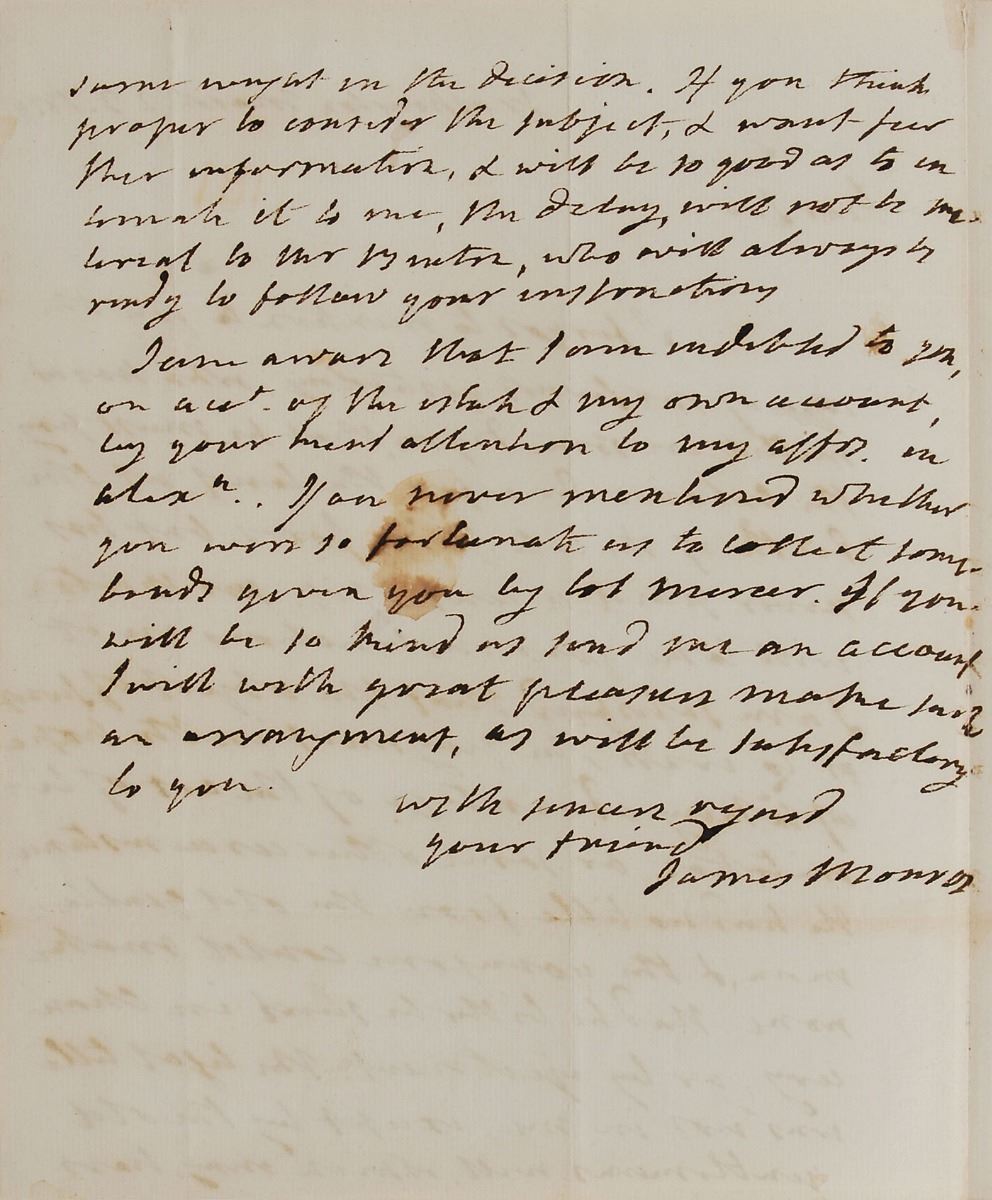 some weight in the decision. If you think
proper to consider the subject, & want fur
ther information, & will be so good as to in
timate it to me, the delay, will not be ma-
terial to Mr , who will always be
ready to follow your instructions
I am aware that I am indebted to you,
on acct. of the estate & my own account,
by your kind attention to my affrs. in
alexa.. You never mentioned whether
you were so fortunate as to collect some
bonds given you by Col Mercer. If you
will be so kind as send me an account
I will with great pleasure make such
an arrangment, as will be satisfactory
to you.
with sincere regard
your friend
James Monroe